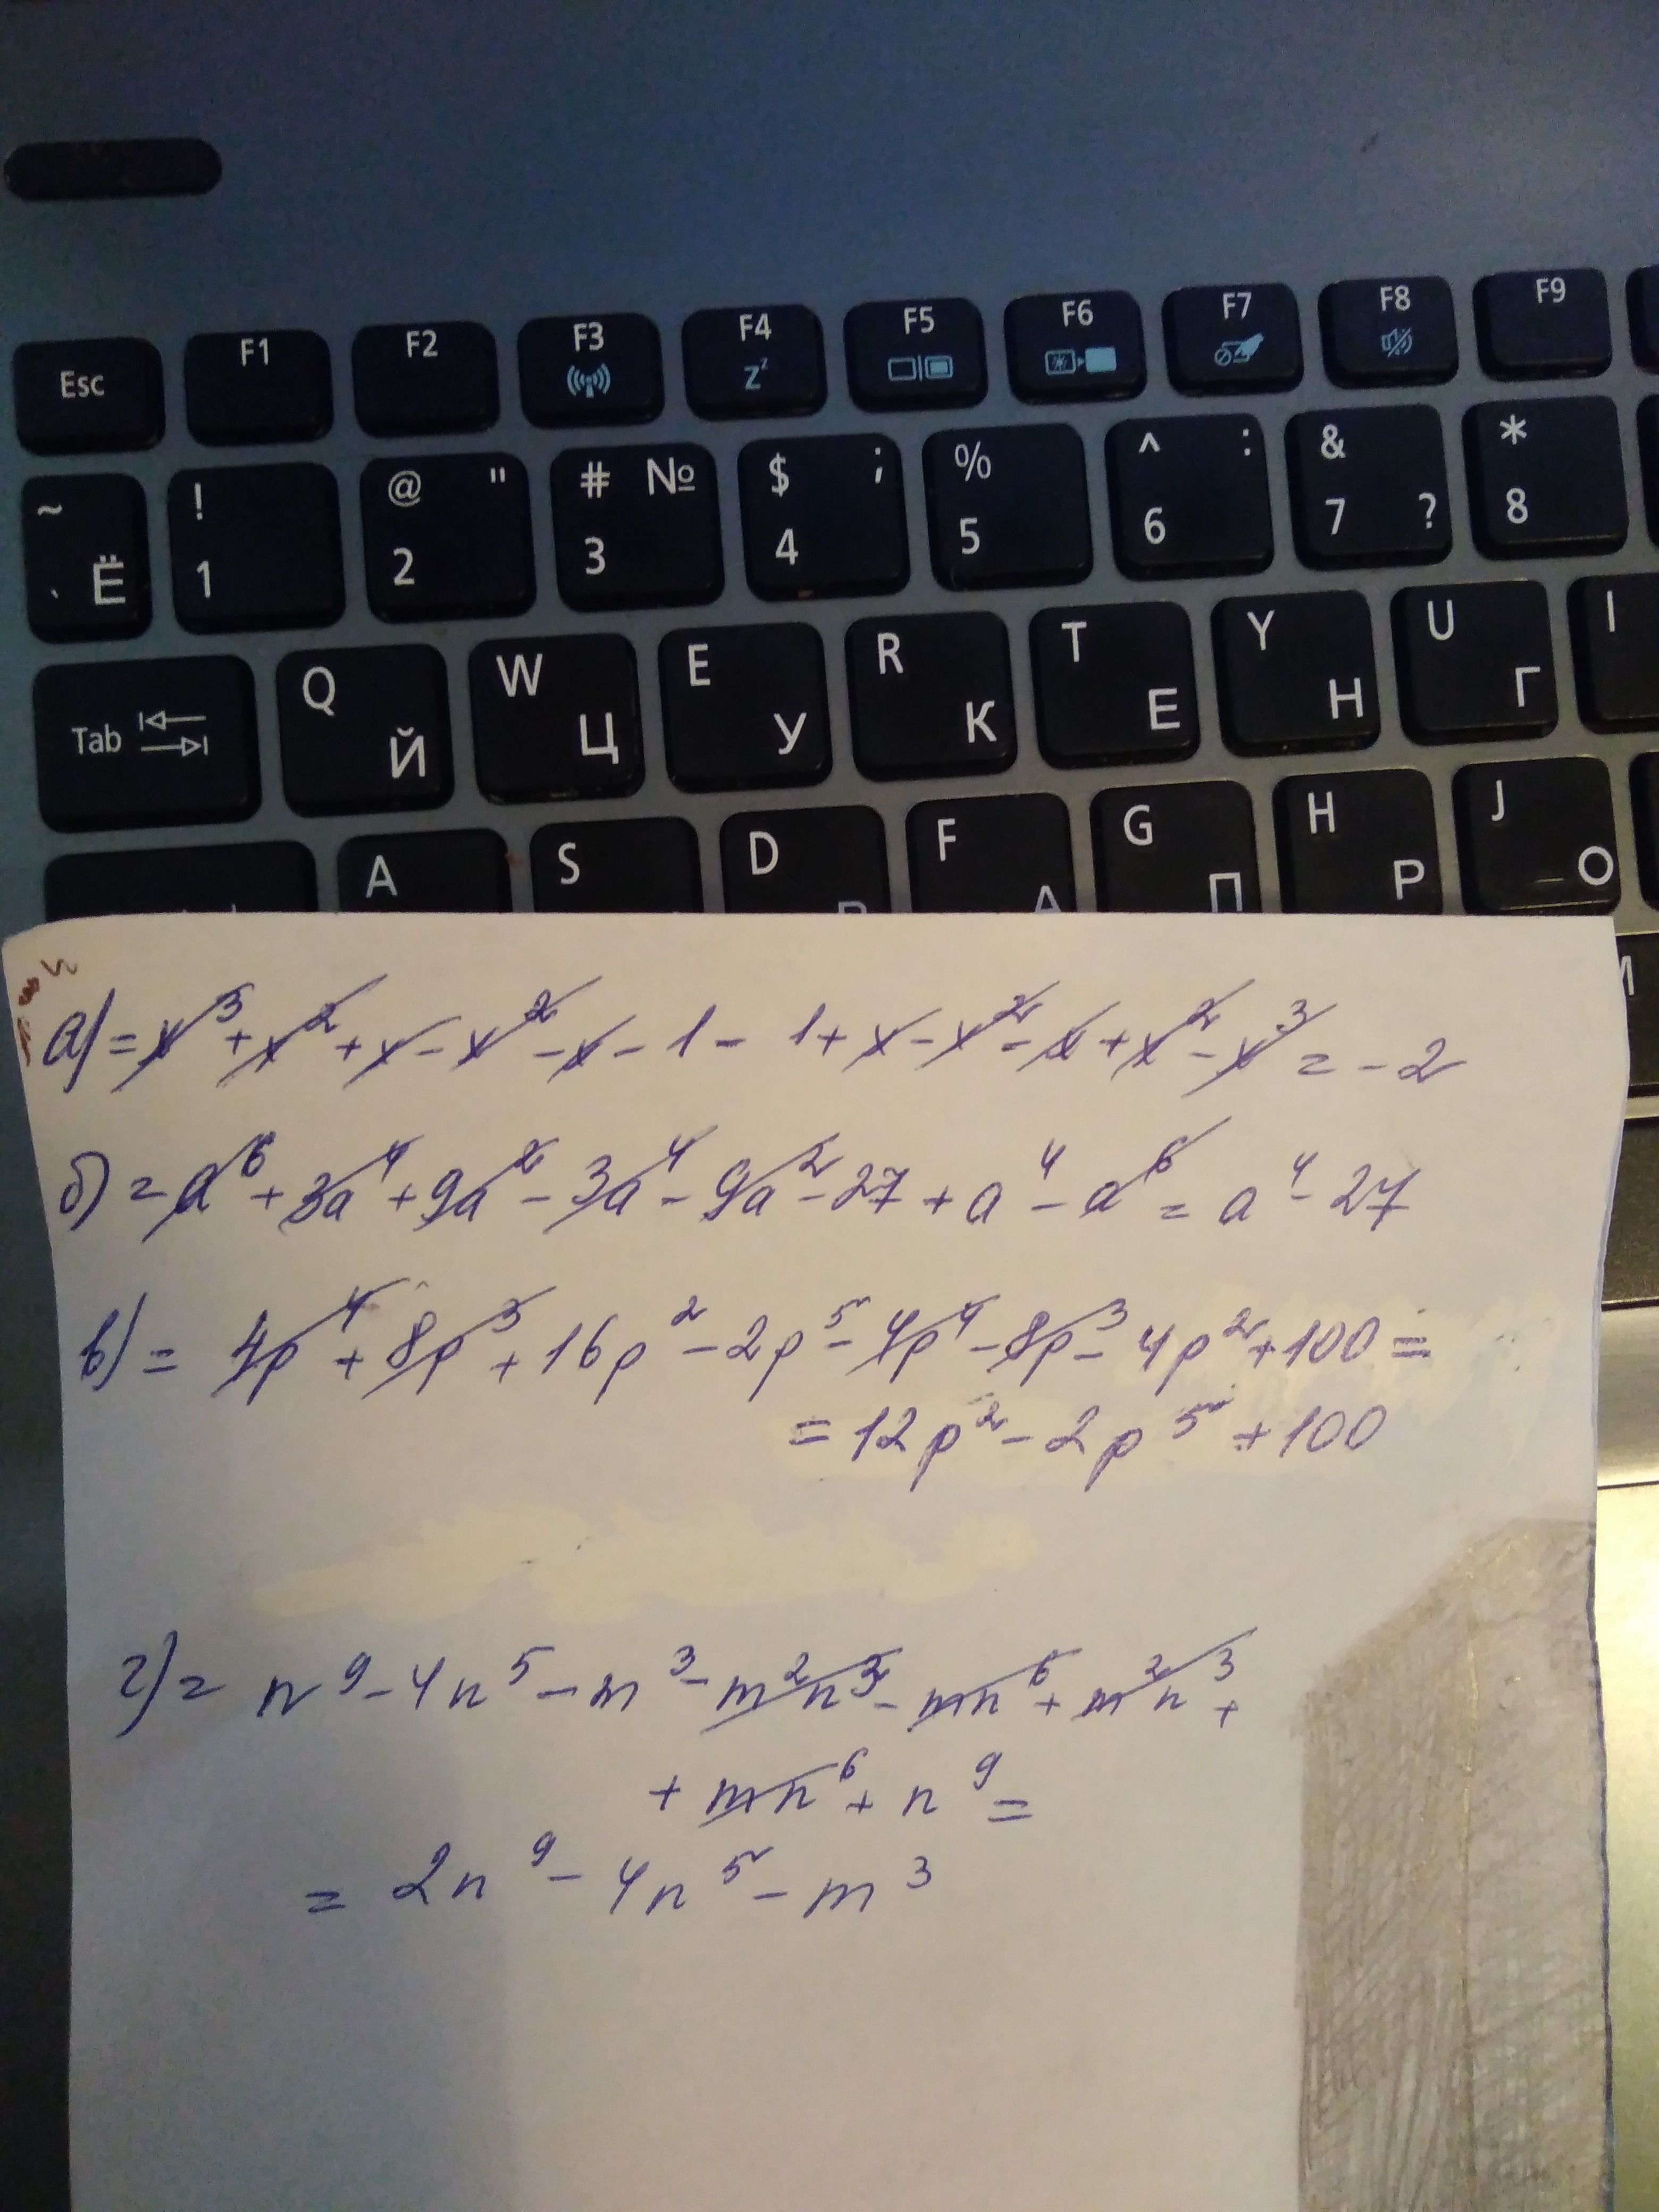 Esc F1 F2 F3 F4 Z^z F5 F6 F7 F8 F9
~ ` Ё ! 1 @ " 2 # № 3 $ ; 4 % 5 ^ : 6 & 7 ? * 8
Tab Q Й W Ц E У R К T Е Y Н U Г I
A S D F А G П H Р J О
а) = x³ + x² + x - x² - x - 1 - 1 + x - x² - x + x² - x³ = -2
б) = a⁶ + 3a⁴ + 9a² - 3a⁴ - 9a² - 27 + a⁴ - a⁶ = a⁴ - 27
в) = 4p⁴ + 8p³ + 16p² - 2p⁵ - 4p⁴ - 8p³ - 4p² + 100 =
= 12p² - 2p⁵ + 100
г) = n⁹ - 4n⁵ - m³ - m²n³ - mn⁶ + m²n³ +
+ mn⁶ + n⁹ =
= 2n⁹ - 4n⁵ - m³